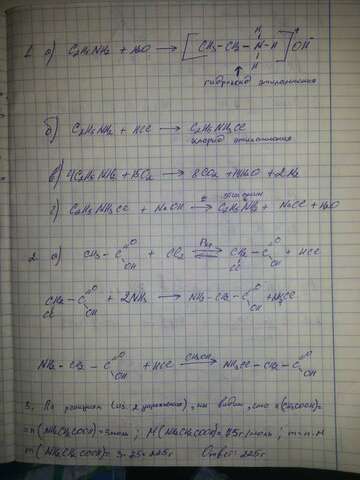 1. а) C2H5NH2 + H2O → [CH3-CH2-N-H]+ OH-
H
H
гидроксид этиламмония
б) C2H5NH2 + HCl → C2H5NH3Cl
хлорид этиламмония
в) 4C2H5NH2 + 15O2 → 8CO2 + 14H2O + 2N2
г) C2H5NH3Cl + NaOH → C2H5NH2 + NaCl + H2O
этиламин
2. а) CH3-C=O + Cl2 → CH2-C=O + HCl
OH Cl OH
CH2-C=O + 2NH3 → NH2-CH2-C=O + NH4Cl
Cl OH OH
NH2-CH2-C=O + HCl → NH3Cl-CH2-C=O
OH CH3OH OH
3. По реакции (из 2 упражнения), мы видим, что n(CH3COOH)=
=n(NH2CH2COOH)=3моль; M(NH2CH2COOH)=75г/моль; m=n·M
m(NH2CH2COOH)=3·75=225г Ответ: 225г